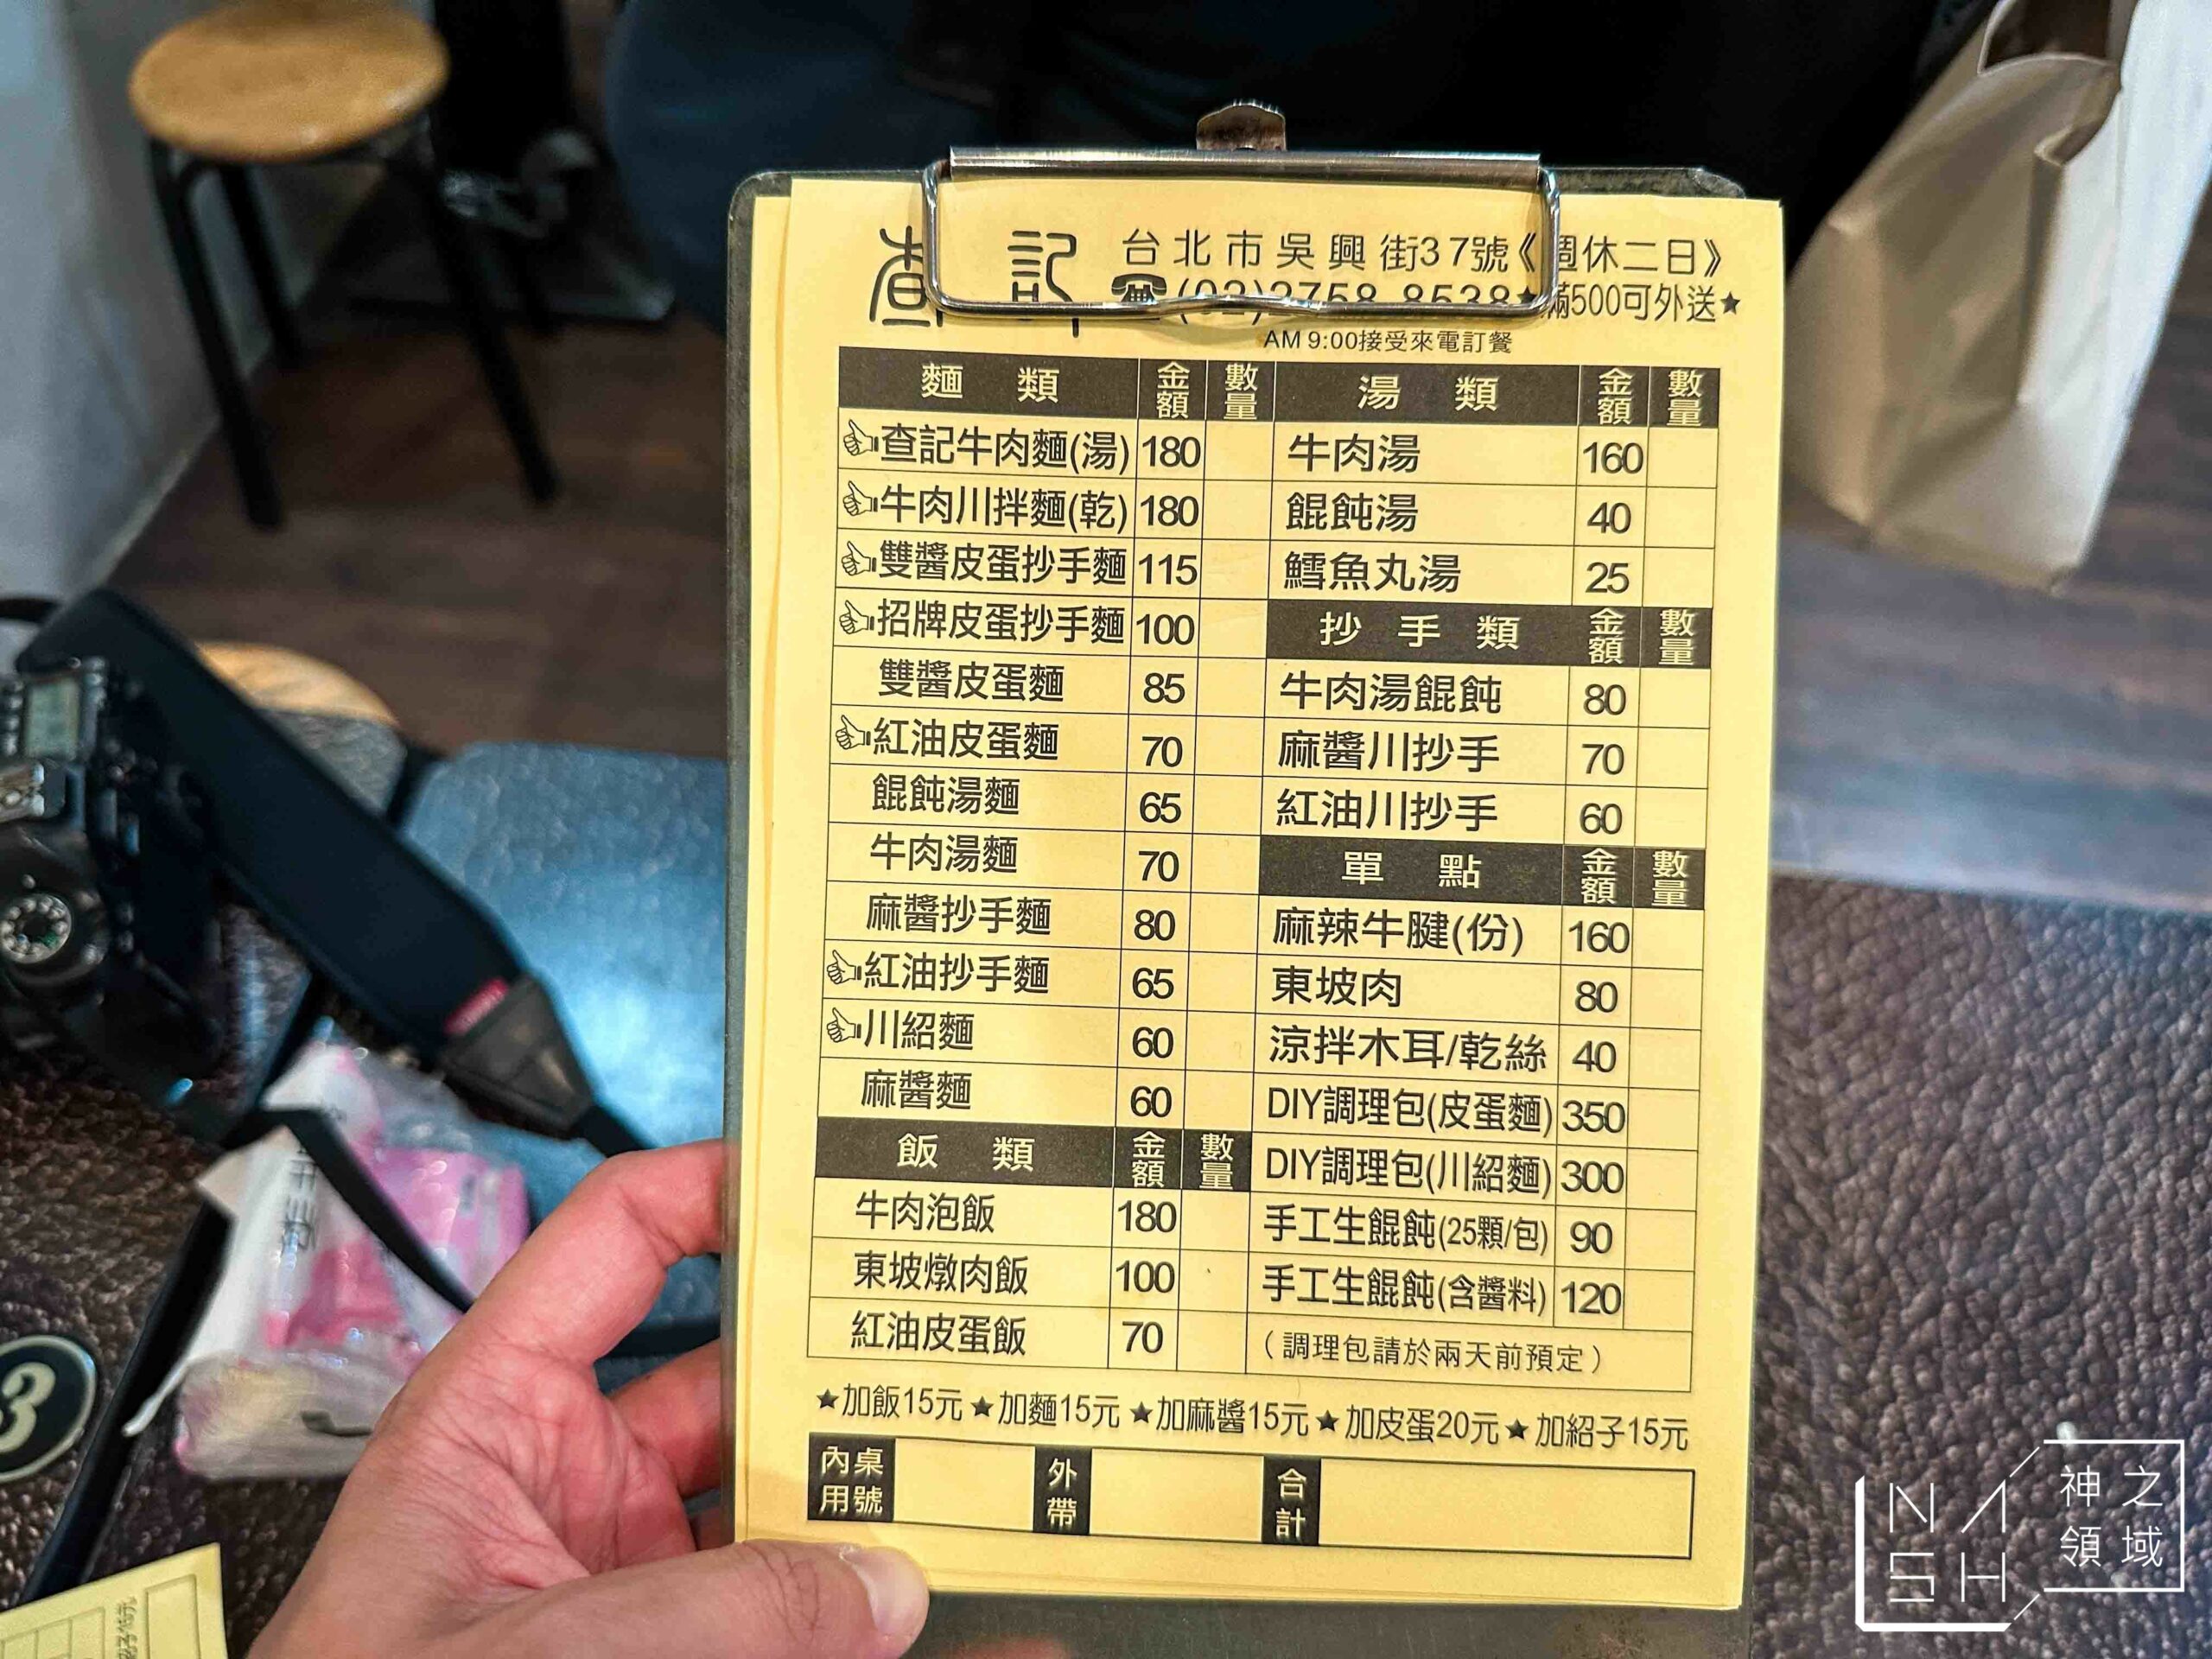 查記
台北市吳興街37號《週休二日》
(02)2758-8538★滿500可外送★
AM 9:00接受來電訂餐
麵類 金額 數量
查記牛肉麵(湯) 180
牛肉川拌麵(乾) 180
雙醬皮蛋抄手麵 115
招牌皮蛋抄手麵 100
雙醬皮蛋麵 85
紅油皮蛋麵 70
餛飩湯麵 65
牛肉湯麵 70
麻醬抄手麵 80
紅油抄手麵 65
川紹麵 60
麻醬麵 60
飯類 金額 數量
牛肉泡飯 180
東坡燉肉飯 100
紅油皮蛋飯 70
湯類 金額 數量
牛肉湯 160
餛飩湯 40
鱈魚丸湯 25
抄手類 金額 數量
牛肉湯餛飩 80
麻醬川抄手 70
紅油川抄手 60
單點 金額 數量
麻辣牛腱(份) 160
東坡肉 80
涼拌木耳/乾絲 40
DIY調理包(皮蛋麵) 350
DIY調理包(川紹麵) 300
手工生餛飩(25顆/包) 90
手工生餛飩(含醬料) 120
(調理包請於兩天前預定)
★加飯15元★加麵15元★加麻醬15元★加皮蛋20元★加紹子15元
內用桌號 外帶 合計
3
NASH 神之領域